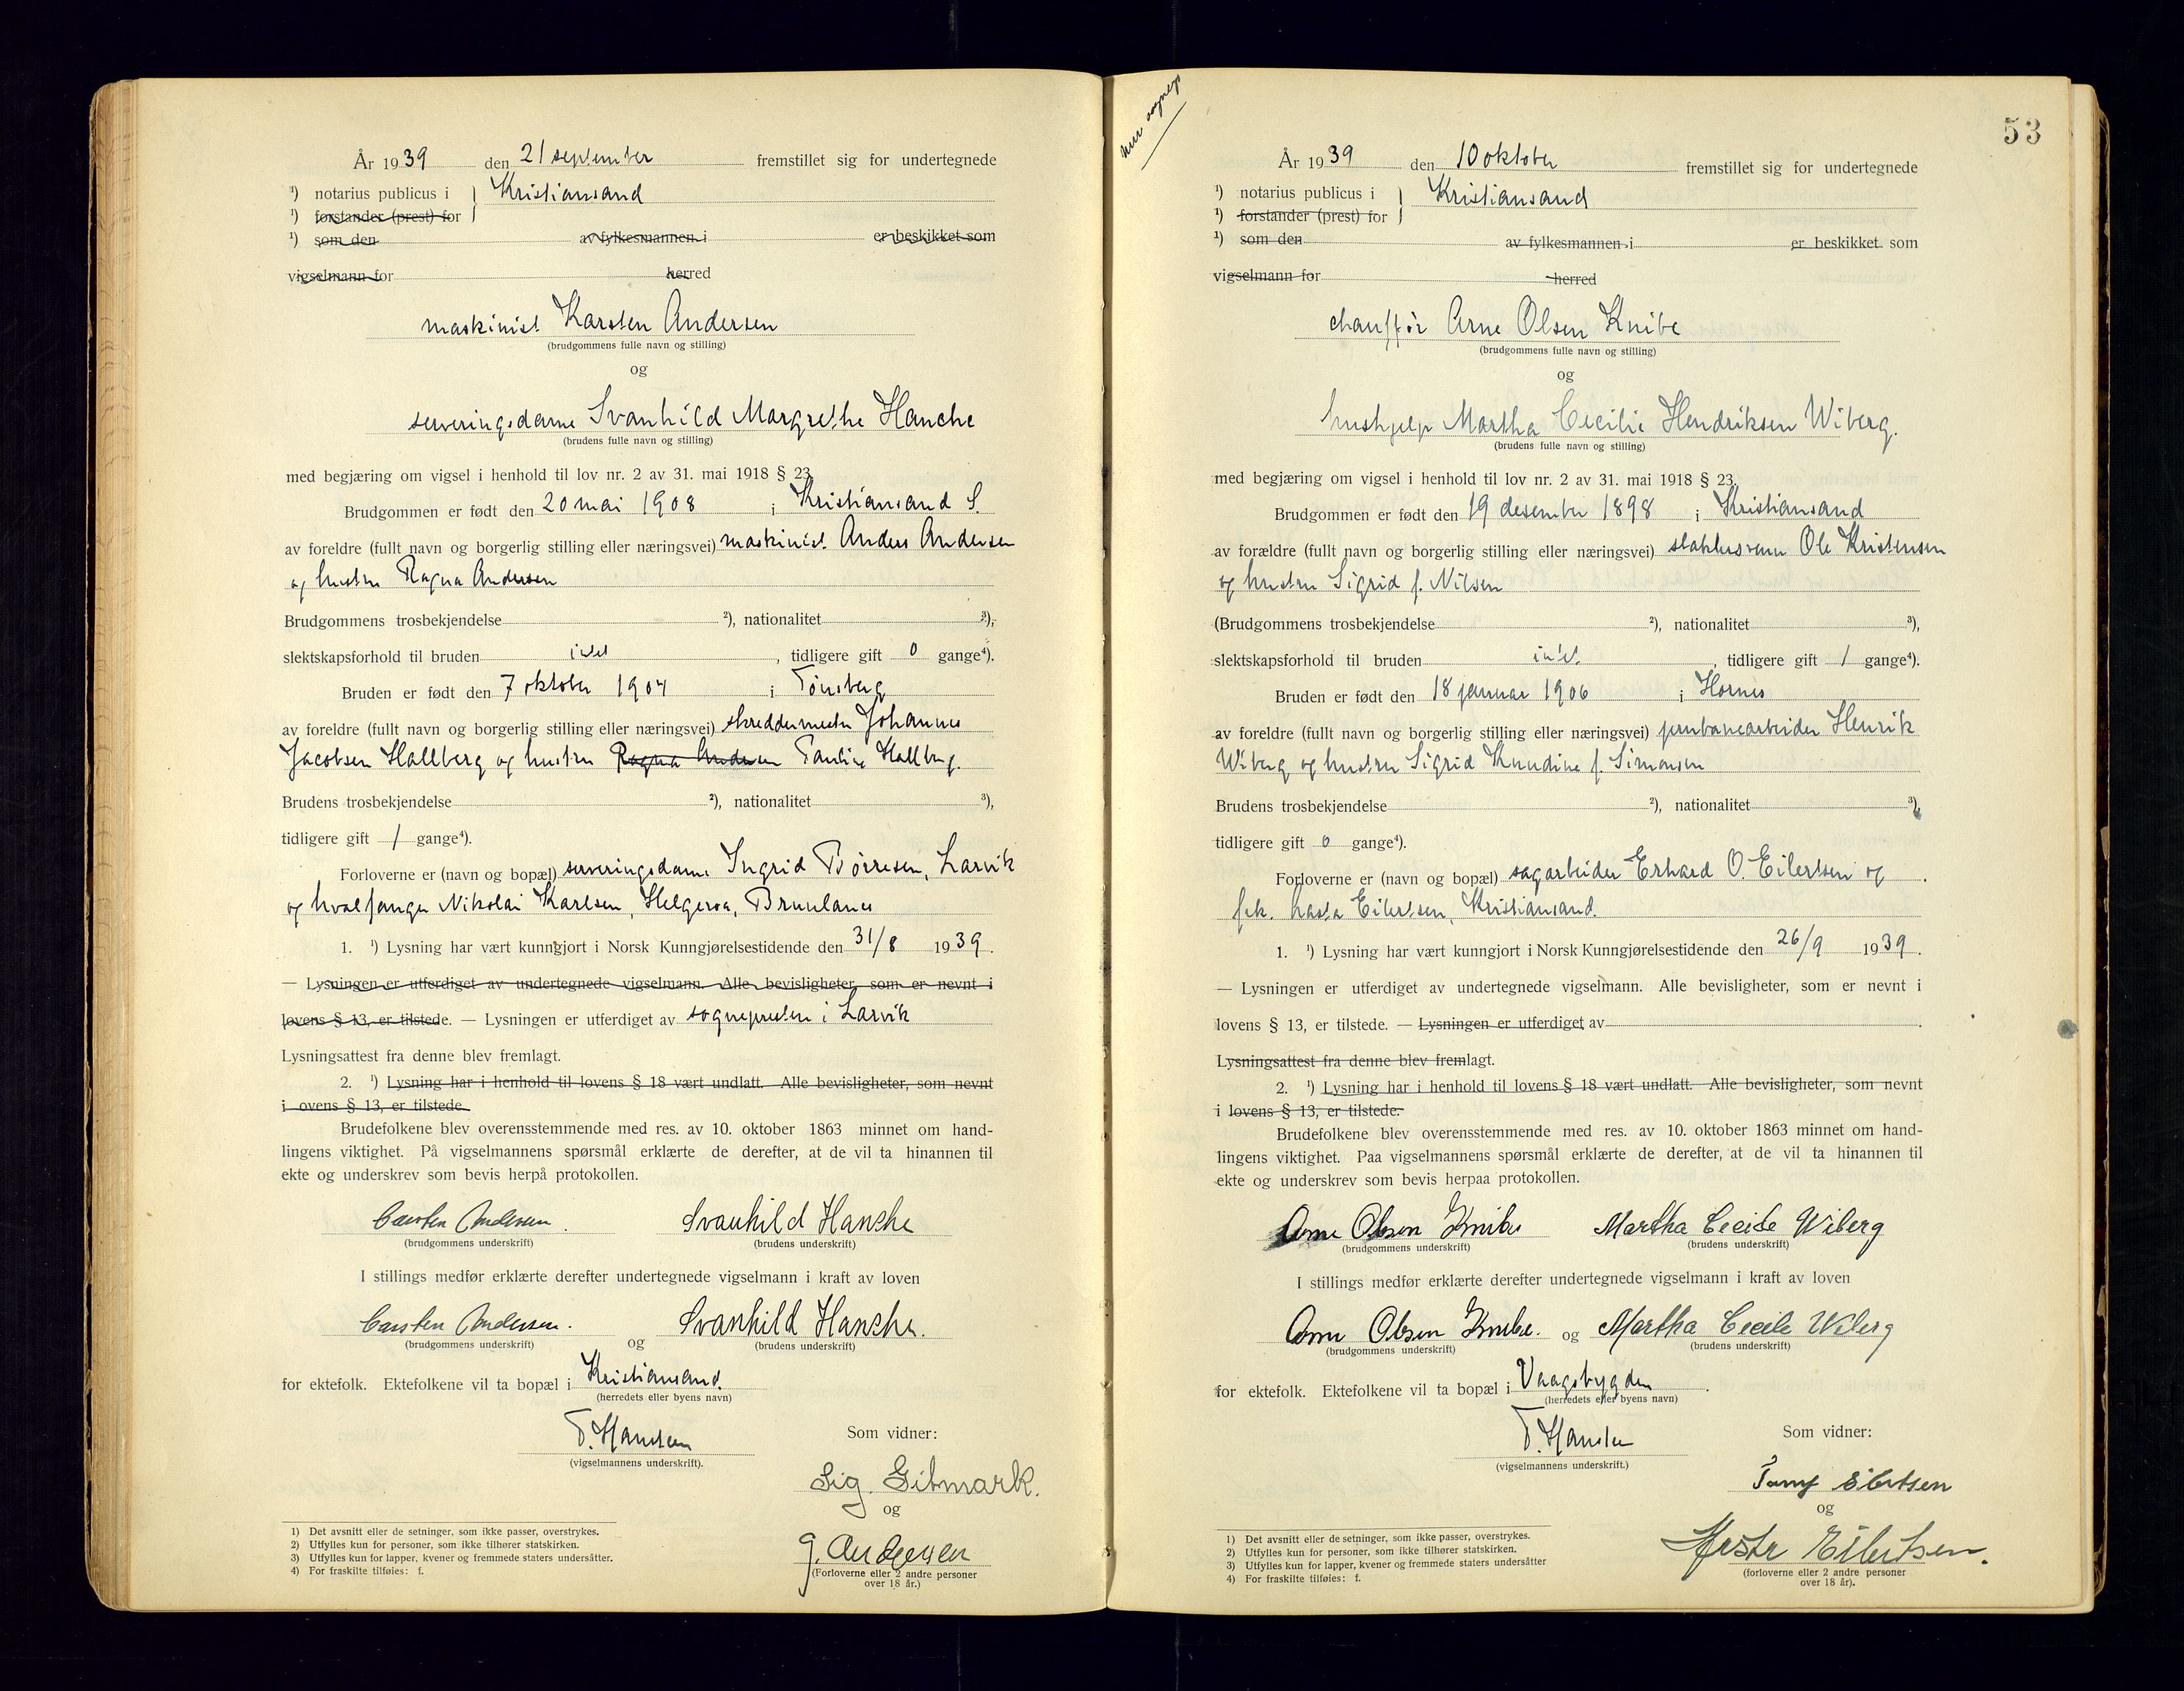 År 1939 den 21 september fremstillet sig for undertegnede
¹) notarius publicus i } Kristiansand
¹) forstander (prest) for
¹) som den av fylkesmannen i er beskikket som
vigselmann for herred
maskinist Karsten Andersen
(brudgommens fulle navn og stilling)
og
serveringsdame Svanhild Margrethe Hanche
(brudens fulle navn og stilling)
med begjæring om vigsel i henhold til lov nr. 2 av 31. mai 1918 § 23.
Brudgommen er født den 20 mai 1908 i Kristiansand S.
av foreldre (fullt navn og borgerlig stilling eller næringsvei) maskinist Anders Andersen
og hustru Ragna Andersen
Brudgommens trosbekjendelse ²), nationalitet ³),
slektskapsforhold til bruden intet, tidligere gift 0 gange⁴).
Bruden er født den 7 oktober 1904 i Tønsberg
av foreldre (fullt navn og borgerlig stilling eller næringsvei) skreddermester Johannes
Jacobsen Hallberg og hustru Ragna Andersen Pauline Hallberg.
Brudens trosbekjendelse ²), nationalitet ³),
tidligere gift 1 gange⁴).
Forloverne er (navn og bopæl) serveringsdame Ingrid Børresen, Larvik
og hvalfanger Nikolai Karlsen, Helgeroa, Brunlanes
1. ¹) Lysning har vært kunngjort i Norsk Kunngjørelsestidende den 31/8 1939.
— Lysningen er utferdiget av undertegnede vigselmann. Alle bevisligheter, som er nevnt i
lovens § 13, er tilstede. — Lysningen er utferdiget av sognepresten i Larvik
Lysningsattest fra denne blev fremlagt.
2. ¹) Lysning har i henhold til lovens § 18 vært undlatt. Alle bevisligheter, som nevnt
i ovens § 13, er tilstede.
Brudefolkene blev overensstemmende med res. av 10. oktober 1863 minnet om hand-
lingens viktighet. På vigselmannens spørsmål erklærte de derefter, at de vil ta hinannen til
ekte og underskrev som bevis herpå protokollen.
Carsten Andersen. Svanhild Hanche
(brudgommens underskrift) (brudens underskrift)
I stillings medfør erklærte derefter undertegnede vigselmann i kraft av loven
Carsten Andersen. og Svanhild Hanche.
(brudgommens underskrift) (brudens underskrift)
for ektefolk. Ektefolkene vil ta bopæl i Kristiansand.
(herredets eller byens navn)
T. Hansen
(vigselmannens underskrift).
Som vidner:
Sig. Gitmark.
og
G. Andersen
(Forloverne eller 2 andre personer
over 18 år.)
1) Det avsnitt eller de setninger, som ikke passer, overstrykes.
2) Utfylles kun for personer, som ikke tilhører statskirken.
3) Utfylles kun for lapper, kvener og fremmede staters undersåtter.
4) For fraskilte tilføies: f.
53
År 1939 den 10 oktober fremstillet sig for undertegnede
¹) notarius publicus i } Kristiansand
¹) forstander (prest) for
¹) som den av fylkesmannen i er beskikket som
vigselmann for herred
chauffør Arne Olsen Knibe
(brudgommens fulle navn og stilling)
og
hushjelp Martha Cecilie Hendriksen Wiberg.
(brudens fulle navn og stilling)
med begjæring om vigsel i henhold til lov nr. 2 av 31. mai 1918 § 23.
Brudgommen er født den 19 desember 1898 i Kristiansand
av forældre (fullt navn og borgerlig stilling eller næringsvei) slaktersvenn Ole Kristensen
og hustru Sigrid f. Nilsen
(Brudgommens trosbekjendelse ²), nationalitet ³),
slektskapsforhold til bruden intet, tidligere gift 1 gange⁴).
Bruden er født den 18 januar 1906 i Hornes
av foreldre (fullt navn og borgerlig stilling eller næringsvei) jernbanearbeider Henrik
Wiberg og hustru Sigrid Knudine f. Simonsen
Brudens trosbekjendelse ²), nationalitet ³),
tidligere gift 0 gange⁴).
Forloverne er (navn og bopæl) sagarbeider Erhard O. Eilertsen og
frk. Eilertsen, Kristiansand.
1. ¹) Lysning har vært kunngjort i Norsk Kunngjørelsestidende den 26/9 1939.
— Lysningen er utferdiget av undertegnede vigselmann. Alle bevisligheter, som er nevnt i
lovens § 13, er tilstede. — Lysningen er utferdiget av
Lysningsattest fra denne blev fremlagt.
2. ¹) Lysning har i henhold til lovens § 18 vært undlatt. Alle bevisligheter, som nevnt
i lovens § 13, er tilstede.
Brudefolkene blev overensstemmende med res. av 10. oktober 1863 minnet om hand-
lingens viktighet. Paa vigselmannens spørsmål erklærte de derefter, at de vil ta hinannen til
ekte og underskrev som bevis herpaa protokollen.
Arne Olsen Knibe Martha Cecile Wiberg
(brudgommens underskrift) (brudens underskrift)
I stillings medfør erklærte derefter undertegnede vigselmann i kraft av loven
Arne Olsen Knibe. og Martha Cecile Wiberg
(brudgommens underskrift) (brudens underskrift)
for ektefolk. Ektefolkene vil ta bopæl i Vaagsbygden.
(herredets eller byens navn)
T. Hansen
(vigselmannens underskrift.)
Som vidner:
Eilertsen
og
Eilertsen.
(forloverne eller 2 andre personer
over 18 år).
1) Det avsnitt eller de setninger, som ikke passer, overstrykes.
2) Utfylles kun for personer, som ikke tilhører statskirken.
3) Utfylles kun for lapper, kvener og fremmede staters undersåtter
4) For fraskilte tilføies: f.